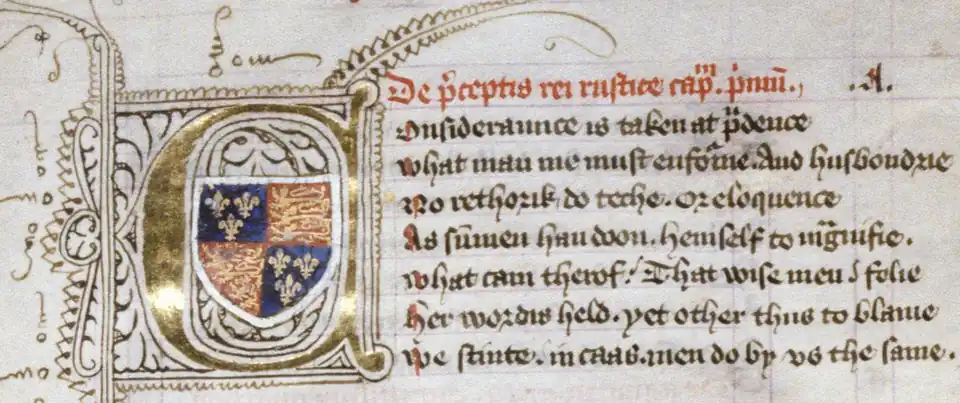 De p̄ceptis rei rustice cap̄m. p̄mū., .A.
Consideraunce is taken at p̄dence
what man me must enforme. And husbondrie
No rethorik do teche. Or eloquence
As sūmen han doon. hemself to magnifie.
what cam therof? That wise men folie
her wordis held. yet other thus to blame
we stinte. in caas. men do by vs the same.